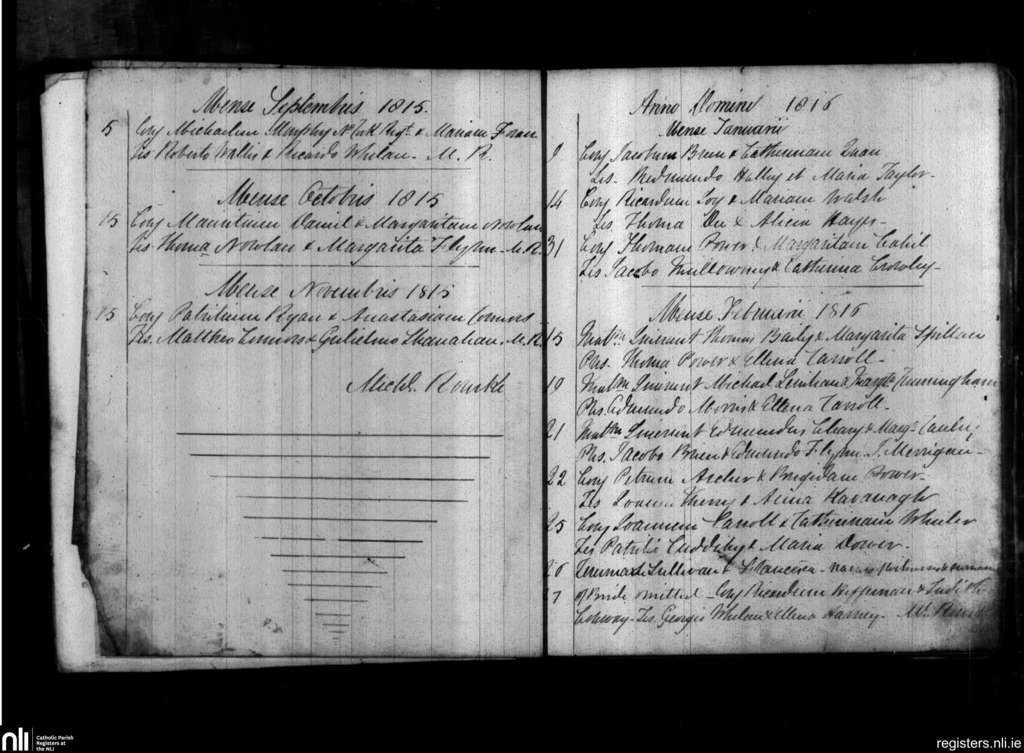 Mense Septembris 1815.
5 Conj Michaelum Murphy Regt & Mariam
Tes Roberto Wallis & Ricardo Whelan - M. R.
Mense Octobris 1815
15 Conj Mauritium Daniel & Margaritam Nowlan
Tes Thoma Nowlan & Margarita Flynn - M. R.
Mense Novembris 1815
15 Conj Patritium Ryan & Anastasiam Connors
Tes. Mattheo & Gulielmo Shanahan. M. R.
Michl. Rourke
Anno Domini 1816
Mense Januarii
9 Conj Jacobum Brien & Catherinam
Tes. Redmundo Halley et Maria Taylor -
14 Conj Ricardum & Mariam Walsh
Tes Thoma & Alicia Hayes -
31 Conj Thomam Power & Margaritam Cahil
Tes Jacobo Mullowney & Catherina Crowley -
Mense Februarii 1816
15 Matm Inierunt Thomas Baily & Margarita Spillan
Phs. Thoma Power & Ellena Carroll -
19 Matm Inierunt Michael & Margta Cunningham
Phs. Edmundo Morris & Ellena Carroll.
21 Matm Inierunt Edmundus Cleary & Margt.
Phs. Jacobo Brien & Edmundo Flynn - T. Merrigan -
22 Conj Petrum Archer & Brigidam Power -
Tes Joanne & Anna Kavanagh
25 Conj Joannem Carroll & Catherinam Wheeler
Tes Patritio Cuddihy & Maria Dower -
26 Jeremiah Sullivan & Francisca -
7 of Bride omitted - Conj Ricardum Heffernan &
Tes. Georgio Whelan & Ellena
nli
Catholic Parish
Registers at
the NLI
registers.nli.ie